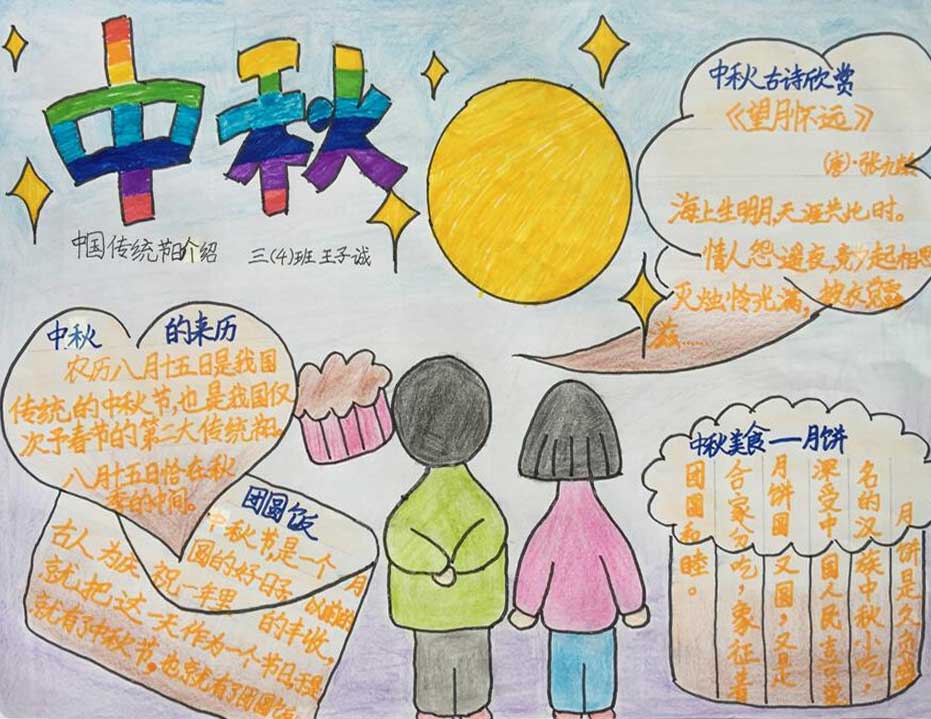 中秋
中国传统节日介绍 三(4)班 王子诚
中秋古诗欣赏
《望月怀远》
(唐)·张九龄
海上生明月,天涯共此时。
情人怨遥夜,竟夕起相思
灭烛怜光满,披衣觉露
滋……
中秋 的来历
农历八月十五日是我国
传统的中秋节,也是我国仅
次于春节的第二大传统节。
八月十五日恰在秋
季的中间。
团圆饭
中秋节,是一个月
圆的好日子,以前的
古人为庆祝一年里的丰收,
就把这一天作为一个节日,于是
就有了中秋节。也就有了团圆饭
中秋美食——月饼
月饼是久负盛
名的汉族中秋小吃,
深受中国人民喜爱
月饼圆又圆,又是
合家分吃,象征着
团圆和睦。